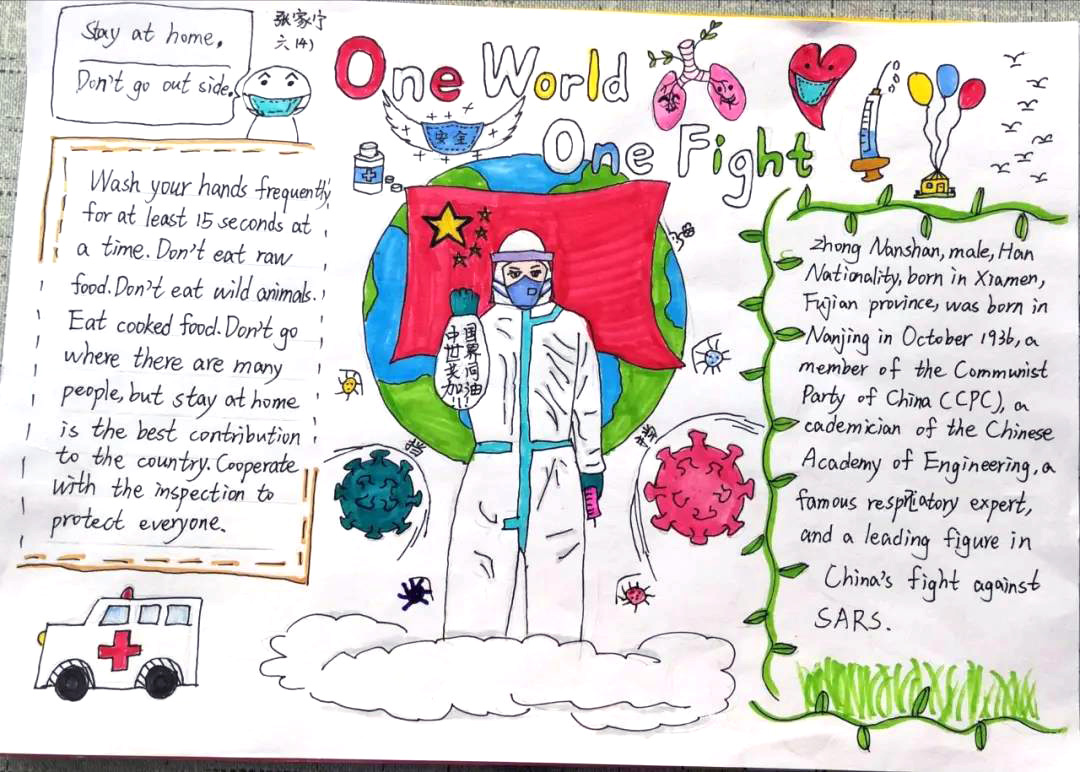 Stay at home,
Don't go out side.
张家宁
六(4)
One World
One Fight
安全
Wash your hands frequently
for at least 15 seconds at
a time. Don't eat raw
food. Don't eat wild animals.
Eat cooked food. Don't go
where there are many
people, but stay at home
is the best contribution
to the country. Cooperate
with the inspection to
protect everyone.
中国
世界
共同
加油!!
挡
挡
Zhong Nanshan, male, Han
Nationality, born in Xiamen,
Fujian province, was born in
Nanjing in October 1936, a
member of the Communist
Party of China (CCPC), a
cademician of the Chinese
Academy of Engineering, a
famous respiratory expert,
and a leading figure in
China's fight against
SARS.